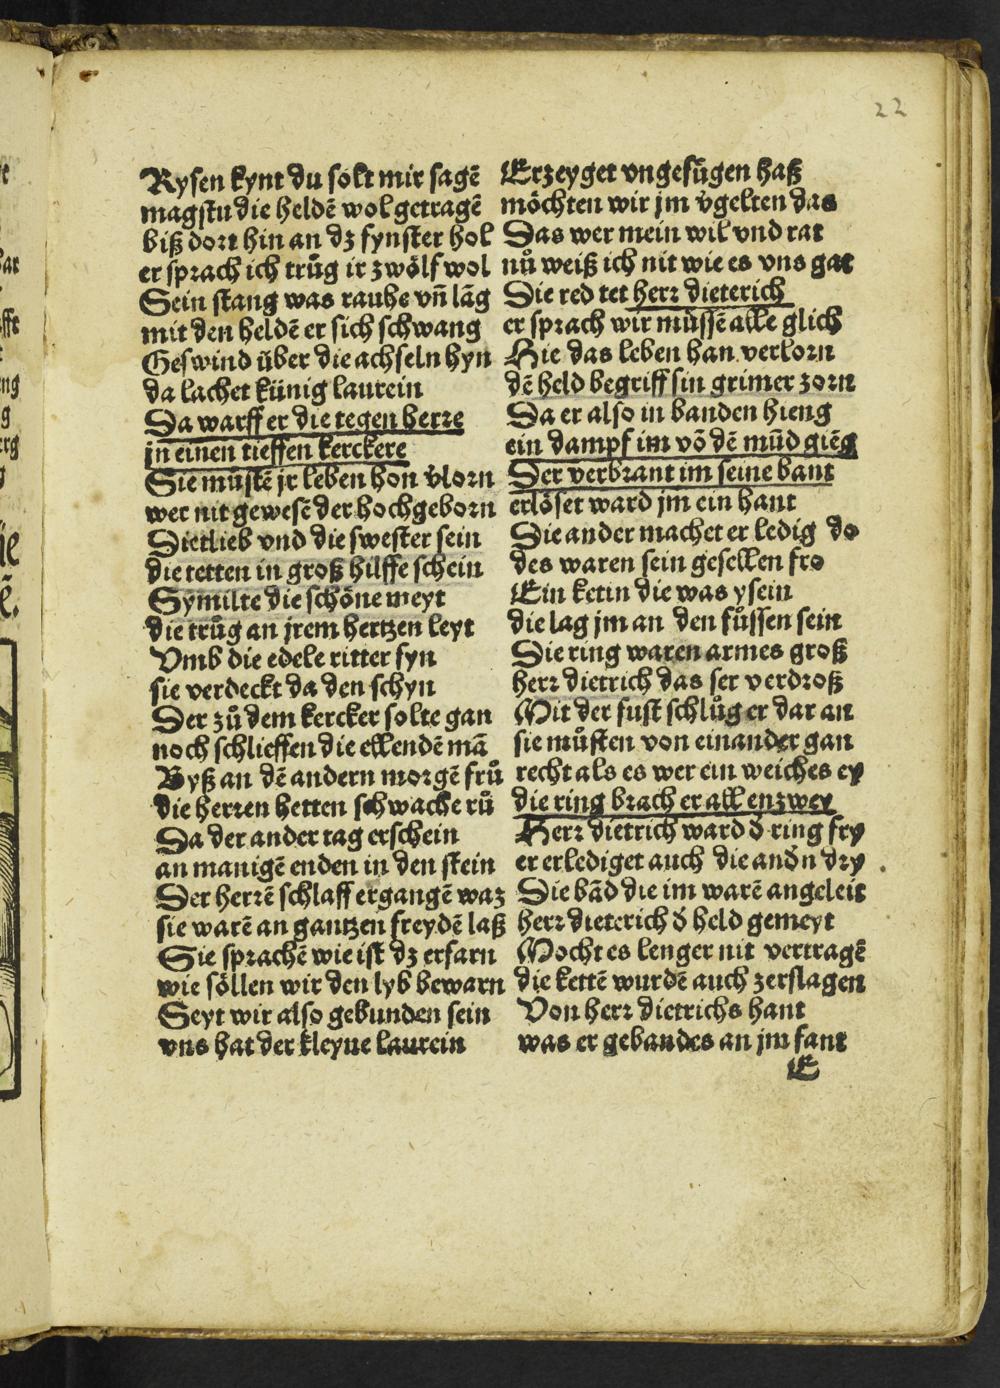 22
Rysen kynt du solt mir sagē
magstu die heldē wol getragē
biß dort hin an dz fynster hol
er sprach ich trůg ir zwölf wol
Sein stang was rauhe vñ lāg
mit den heldē er sich schwang
Geswind über die achseln hyn
da lachet künig laurein
Da warff er die tegen herre
jn einen tieffen kerckere
Sie můstē jr leben hon v̄lorn
wer nit gewesē der hochgeborn
Dietlieb vnd die swester sein
die tetten in groß hilffe schein
Symilte die schöne meyt
die trůg an jrem hertzen leyt
Vmb die edele ritter fyn
sie verdeckt da den schyn
Der zů dem kercker solte gan
noch schlieffen die ellendē mā
Byß an dē andern morgē frů
die herren hetten schwache rů
Da der ander tag erschein
an manigē enden in den stein
Der herrē schlaff ergangē waz
sie warē an gantzen freydē laß
Sie sprachē wie ist dz erfarn
wie söllen wir den lyb bewarn
Seyt wir also gebunden sein
vns hat der kleyne laurein
Erzeyget vngefügen haß
möchten wir jm v̄gelten das
Das wer mein wil vnd rat
nů weiß ich nit wie es vns gat
Die red tet herr dieterich
er sprach wir müssē alle glich
Hie das leben han verlorn
dē held begriff sin grimer zorn
Da er also in banden hieng
ein dampf im vō dē mūd giēg
Der verbrant im seine bant
erlöset ward jm ein hant
Die ander machet er ledig do
des waren sein gesellen fro
Ein ketin die was ysein
die lag jm an den füssen sein
Die ring waren armes groß
herr dietrich das ser verdroß
Mit der fust schlůg er dar an
sie můsten von einander gan
recht als es wer ein weiches ey
die ring brach er all enzwey
Herr dietrich ward d̄ ring fry
er erlediget auch die and̄n dry
Die bād die im warē angeleit
herr dieterich d̄ held gemeyt
Mocht es lenger nit vertragē
die kettē wurdē auch zerslagen
Von herr dietrichs hant
was er gebandes an jm fant
E